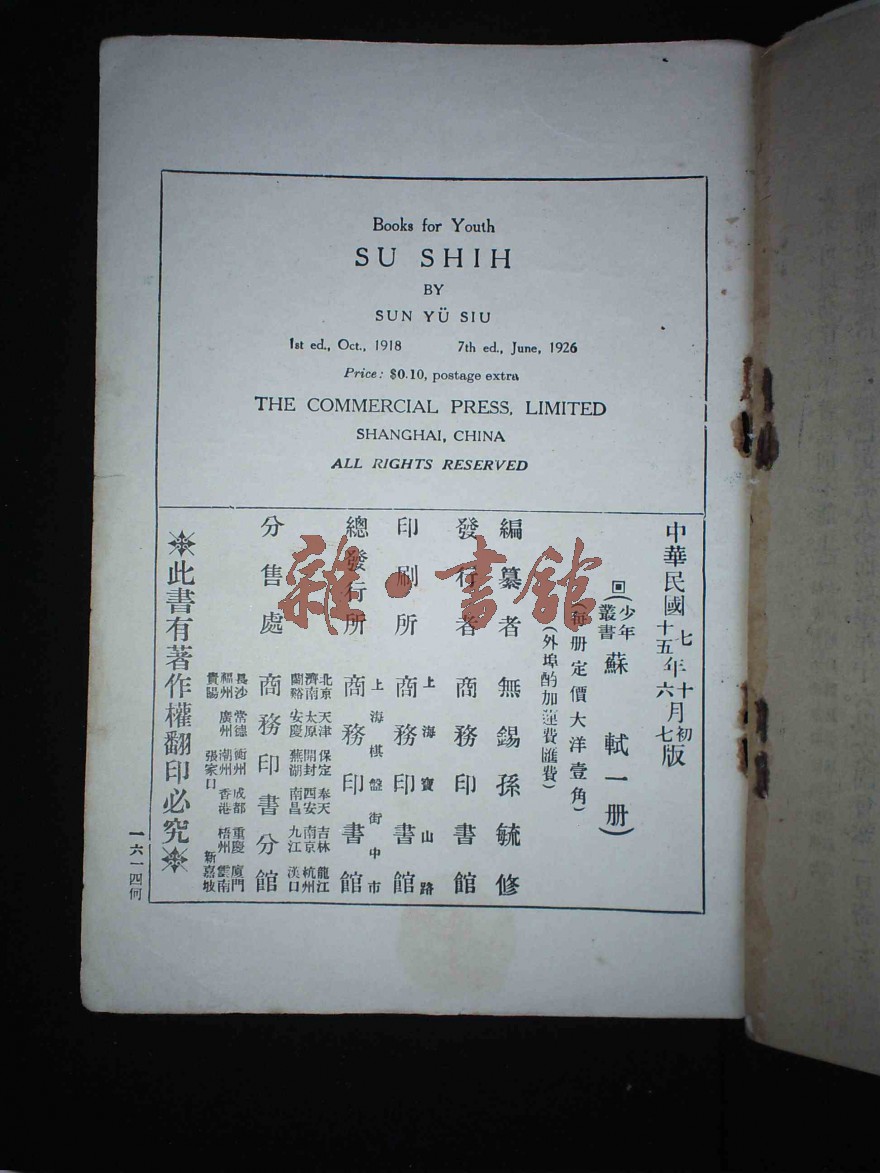 Books for Youth
SU SHIH
BY
SUN YÜ SIU
1st ed., Oct., 1918 7th ed., June, 1926
Price: $0.10, postage extra
THE COMMERCIAL PRESS, LIMITED
SHANGHAI, CHINA
ALL RIGHTS RESERVED
中華民國七年十月初版
十五年六月七版
回(少年叢書蘇軾一册)
(每册定價大洋壹角)
(外埠酌加運費匯費)
編纂者 無錫孫毓修
發行者 商務印書館
印刷所 上海寶山路 商務印書館
總發行所 上海棋盤街中市 商務印書館
分售處 商務印書分館
北京 天津 保定 奉天 吉林 龍江
濟南 太原 開封 西安 南京 杭州
蘭谿 安慶 蕪湖 南昌 九江 漢口
長沙 常德 衡州 成都 重慶 廈門
福州 廣州 潮州 香港 梧州 雲南
貴陽 張家口 新嘉坡
※此書有著作權翻印必究※
一六一四何
雜·書館